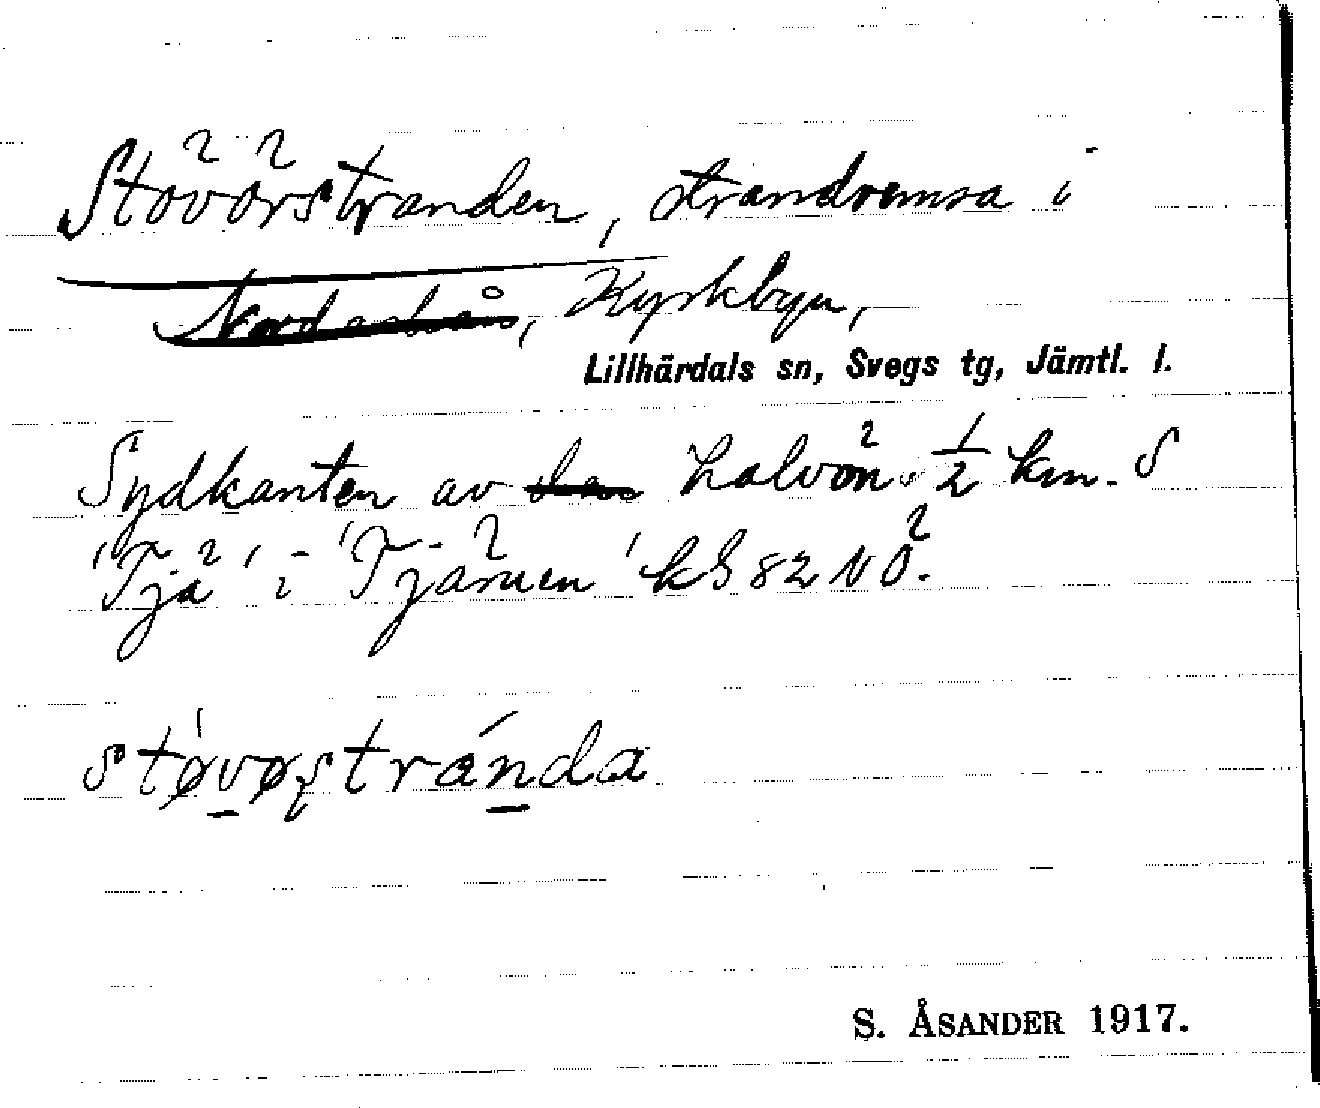 Stövörstranden, strandremsa i
Kyrkbyn,
Lillhärdals sn, Svegs tg, Jämtl. l.
Sydkanten av halvön ½ km. S
'Tjä' i 'Tjärnen' kG 82 NÖ.
støvøştránda
S. ÅSANDER 1917.